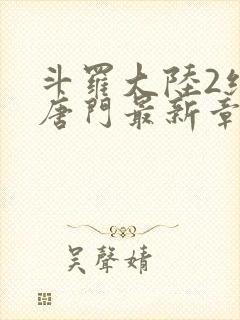 斗羅大陸2
唐門最新章
吳聲婧